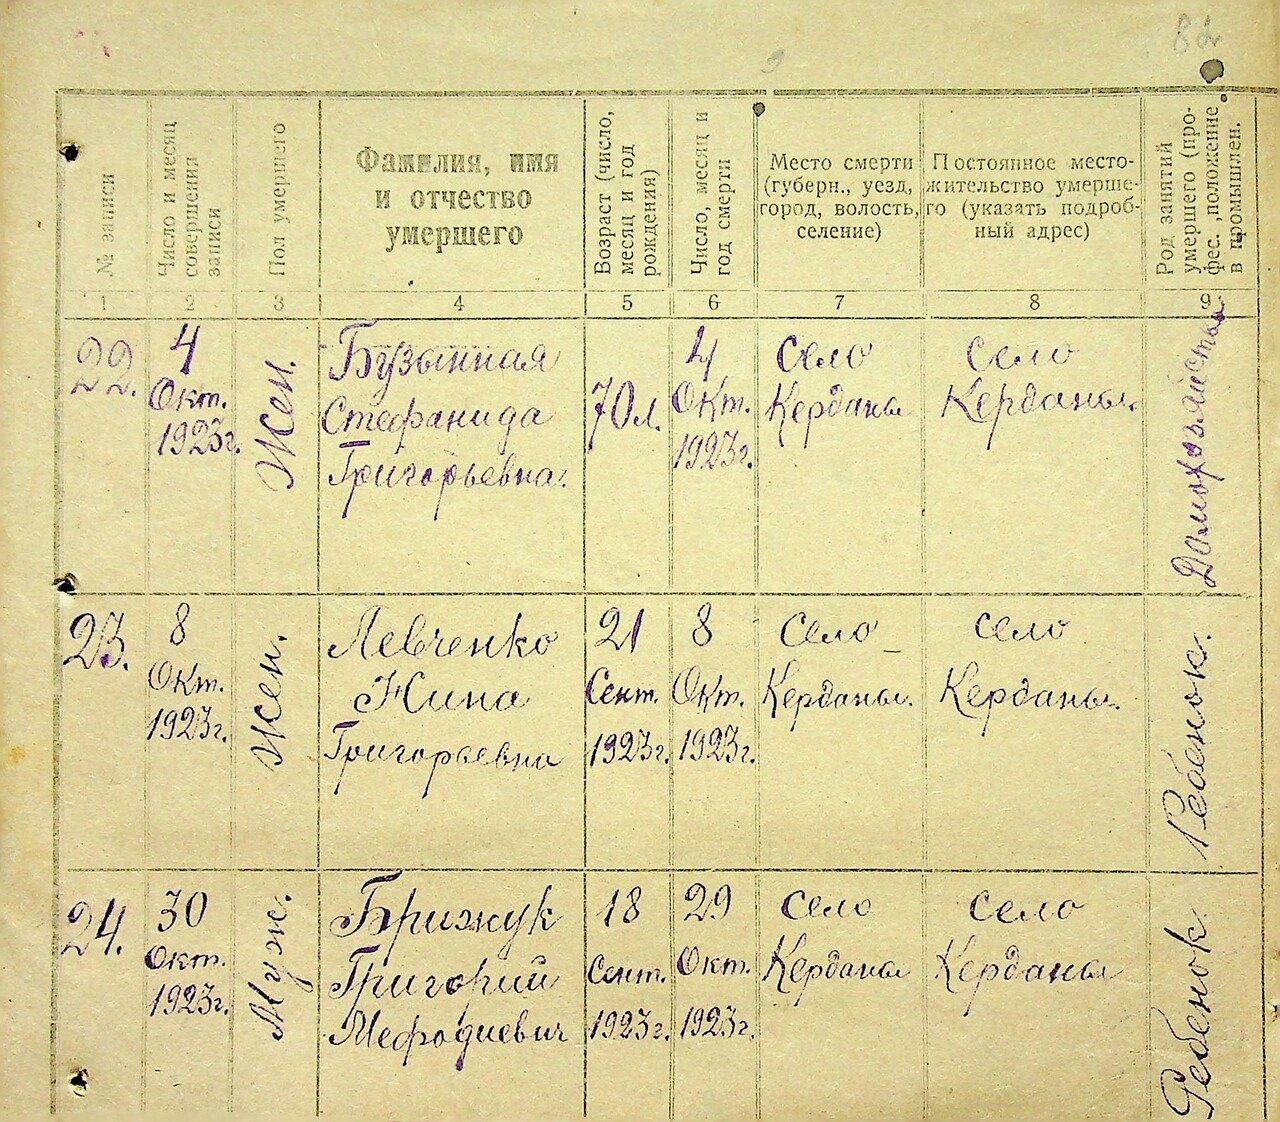 82
№ записи
Число и месяц
совершения
записи
Пол умершего
Фамилия, имя
и отчество
умершего
Возраст (число,
месяц и год
рождения)
Число, месяц и
год смерти
Место смерти
(губерн., уезд,
город, волость,
селение)
Постоянное место-
жительство умерше-
го (указать подроб-
ный адрес)
Род занятий
умершего (про-
фес., положение
в промышлен.
1 2 3 4 5 6 7 8 9
22.
4
Окт.
1923г.
Жен.
Бузынная
Стефанида
Григорьевна.
70л.
4
Окт.
1923г.
Село
Керданы
село
Керданы.
23.
8
Окт.
1923г.
Жен.
Левченко
Нина
Григорьевна
21
Сент.
1923г.
8
Окт.
1923г.
Село
Керданы.
село
Керданы.
Ребенок.
24.
30
Окт.
1923г.
Муж.
Брижук
Григорий
Мефодиевич
18
Сент.
1923г.
29
Окт.
1923г.
село
Керданы
село
Керданы
Ребенок